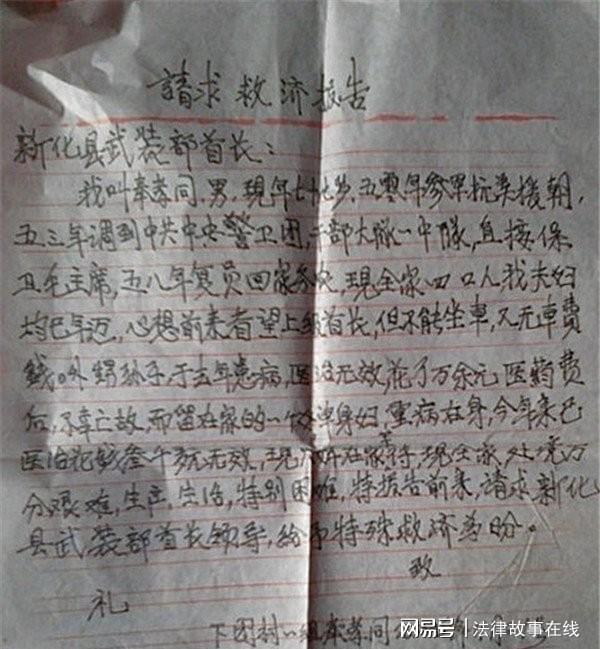 請求救济报告
新化县武装部首长：
我叫奉孝同，男，现年七十七岁，五零年参军抗美援朝，
五三年调到中共中央警卫团，干部大隊一中隊，直接保
卫毛主席，五八年复员回家务农，现全家四口人我夫妇
均已年迈，心想前来看望上级首长，但不能坐車，又无車费
钱。外甥孙子于去年患病，医治无效花了万余元医药费
后，不幸亡故，而留在家的一个单身妇，重病在身，今年来已
医治花彩叁千多元无效，现在家待，现全家处境万
分艰难，生产、生活，特别困难，特报告前来，請求新化
县武装部首长领导，给予特殊救济为盼。
致
礼
下团村一组奉孝同
网易号 法律故事在线